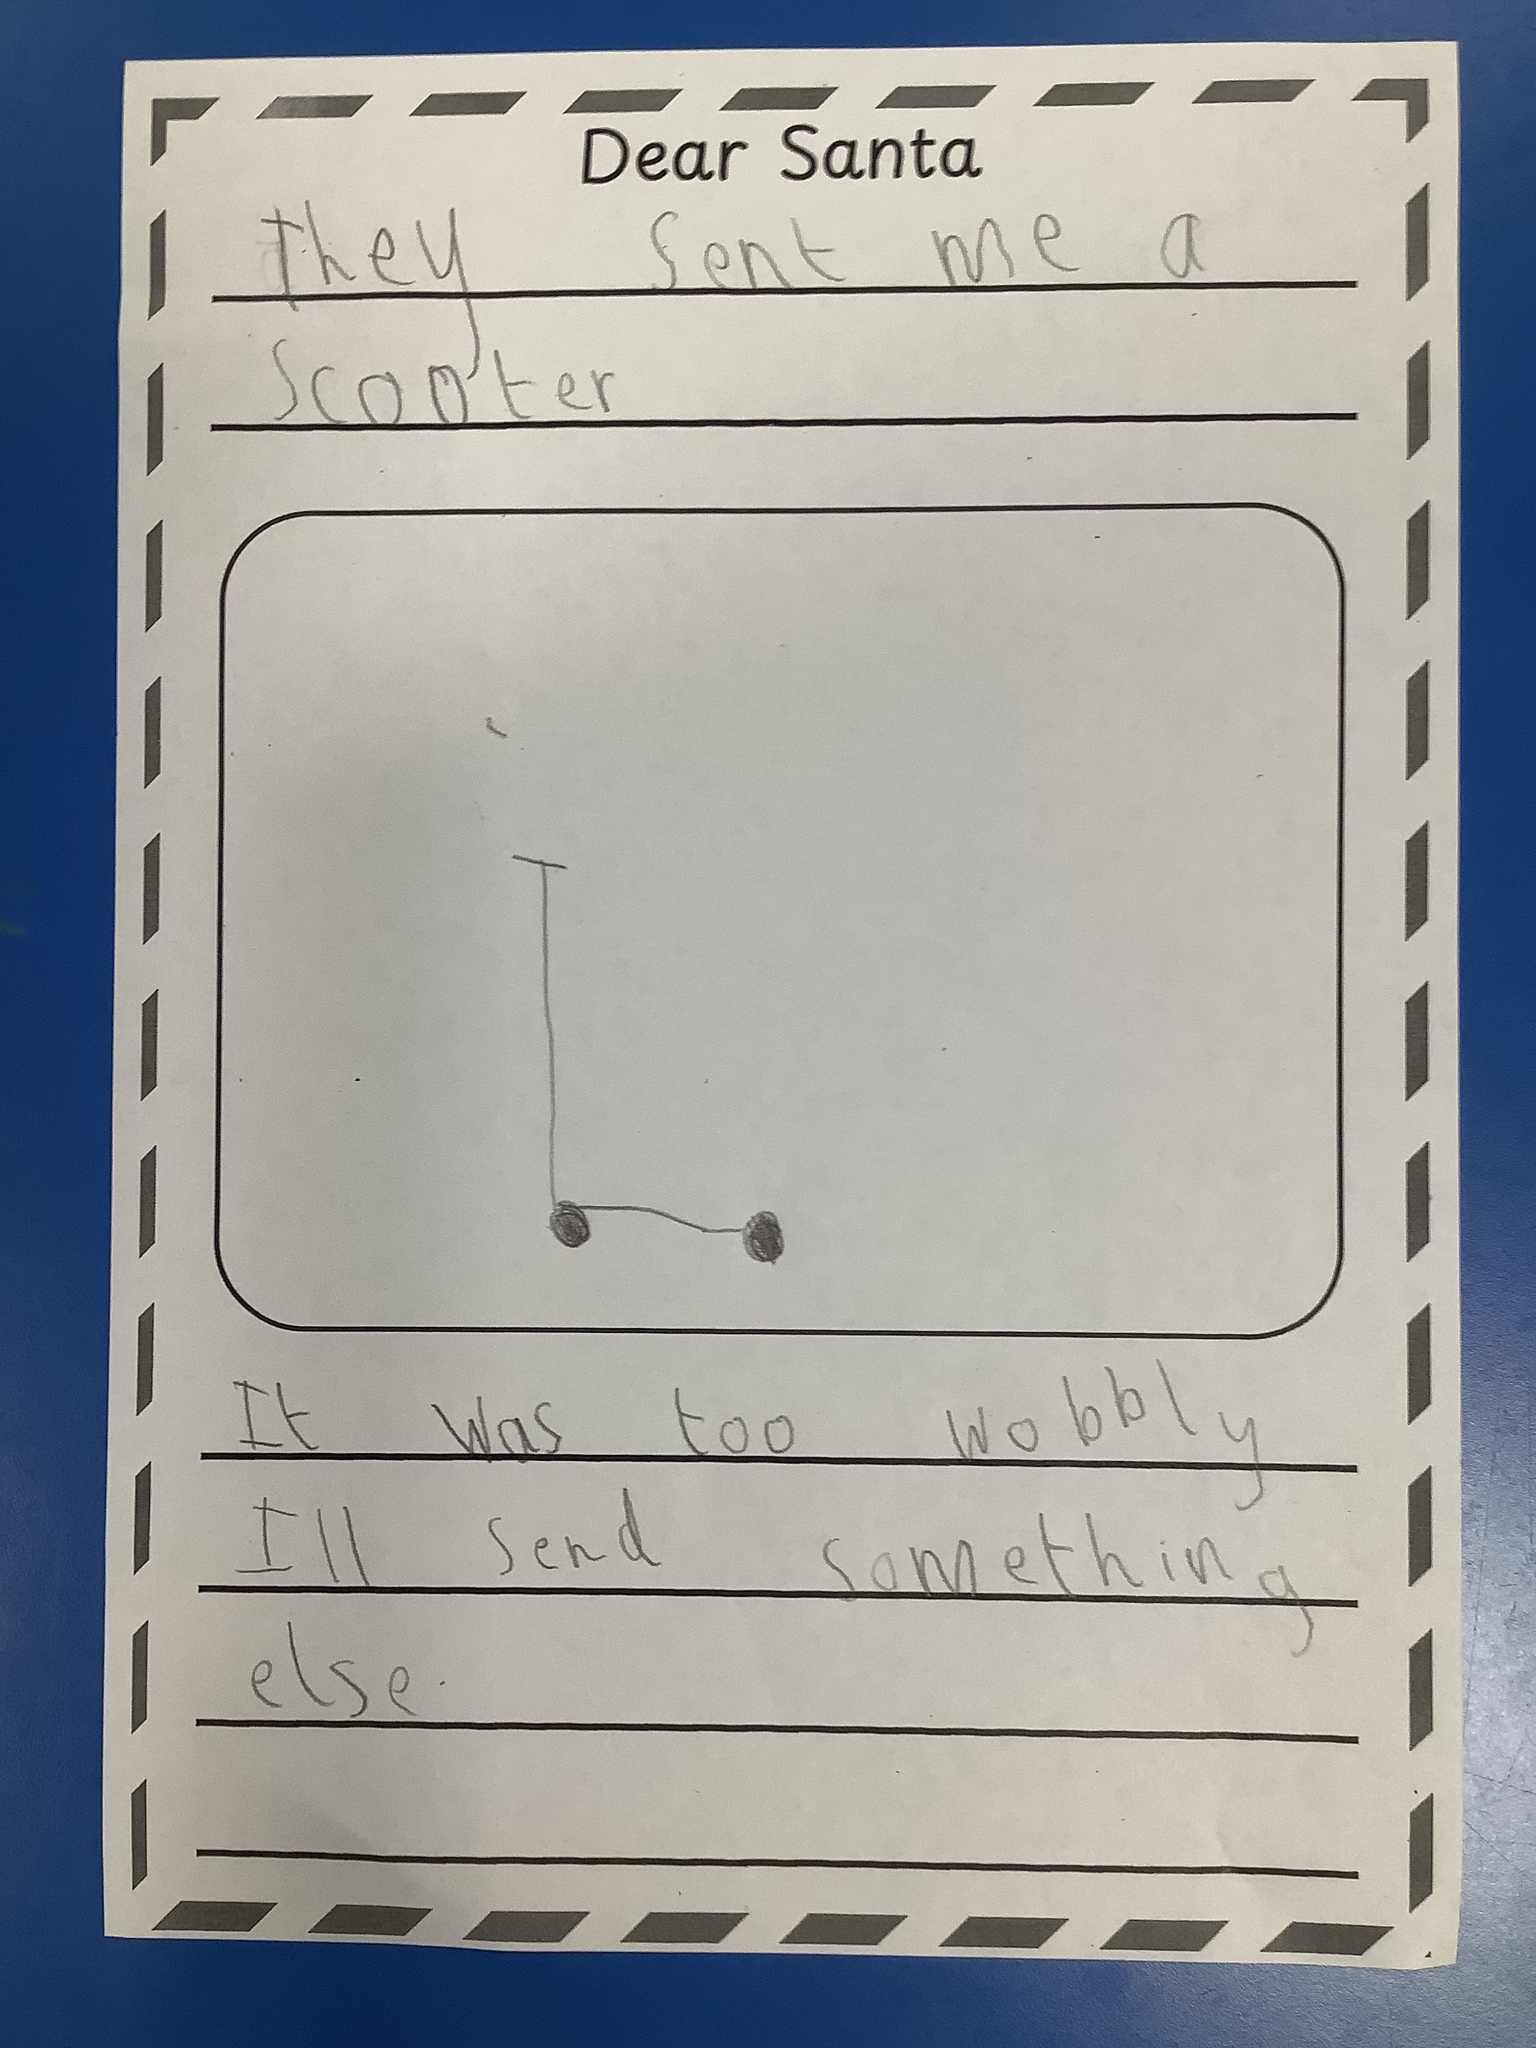 Dear Santa
they sent me a
Scooter
It was too wobbly
Ill send something
else.